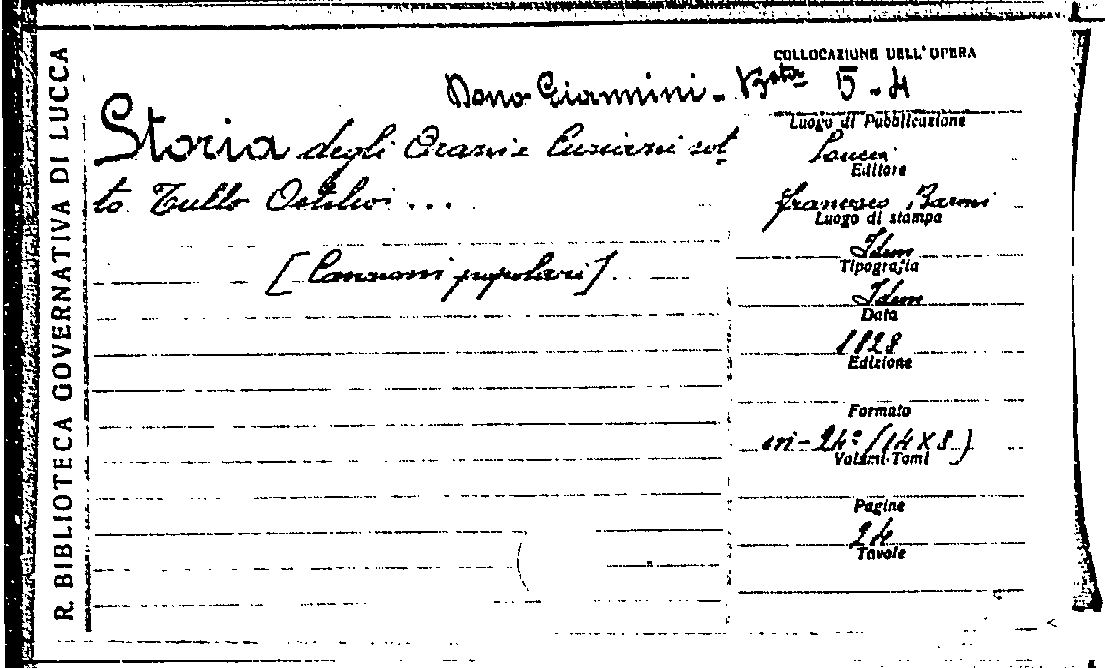 R. BIBLIOTECA GOVERNATIVA DI LUCCA
COLLOCAZIONE DELL'OPERA
Dono Giannini - B.ta 5 - 4
Storia degli Orazi e Curiazi sot
to Tullo Ostilio ...
[Canzoni popolari]
Luogo di Pubblicazione
Lucca
Editore
Francesco Baroni
Luogo di stampa
Idem
Tipografia
Idem
Data
1828
Edizione
Formato
in-24° (14 X 8)
Volumi-Tomi
Pagine
24
Tavole